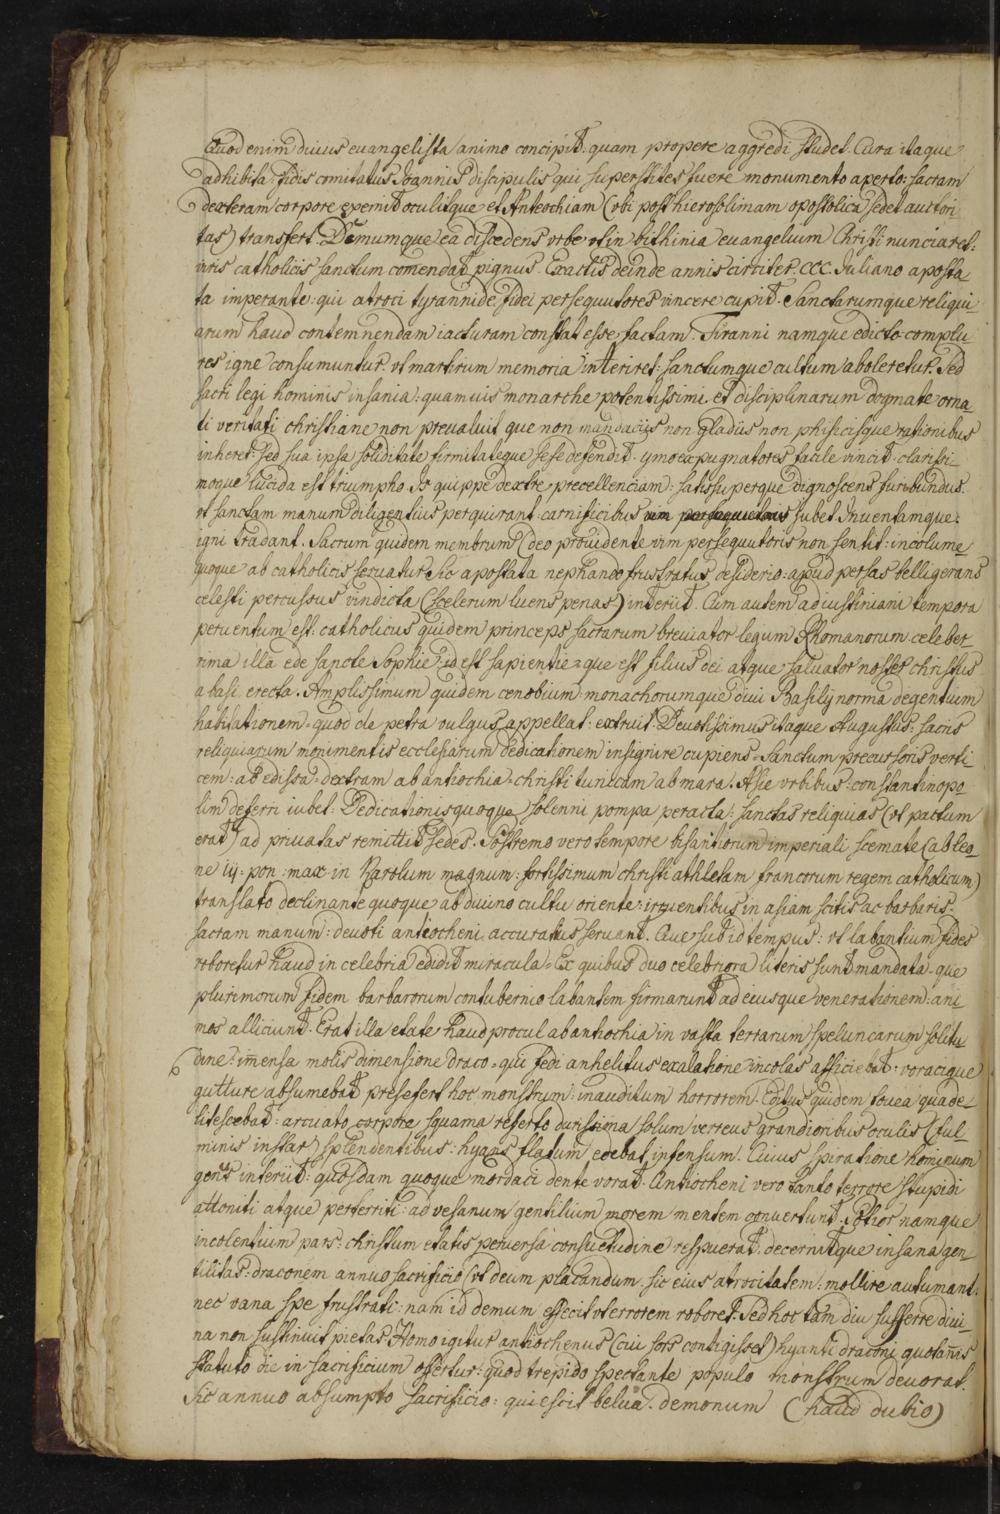 Quod enim diuus euangelista animo concipit: quam propere aggredi studet. Cura itaque
adhibita: fidis comitatus Joannis discipulis qui superstites fuere monumento aperto: sacram
dexteram corpore exemit oculisque et Anteochiam (vbi post hierosolimam apostolica sedet auctori
tas) transfert. Demumque ea discedens vrbe vt in bithinia euangelium Christi nunciaret:
viris catholicis sanctum comendat pignus. Exactis deinde annis circiter. CCC. Iuliano aposta
ta imperante: qui atroci tyrannide fidei persequutores vincere cupit. Sanctarumque reliqui
arum haud contemnendam iacturam constat esse factam. Tiranni namque edicto complu
res igne consumuntur. vt martirum memoria interiret: sanctumque cultum aboleretur. Sed
sacri legi hominis insania: quamuis monarche potentissimi et disciplinarum dogmate orna
ti veritati christiane non preualuit que non mandacijs non gladijs non phisicisque rationibus
inheret: sed sua ipsa soliditate firmitateque sese defendit. ymo expugnatores facile vincit. clarissi
moque lucida est triumpho. Is quippe dextre precellenciam: satis superque dignoscens furibundus.
vt sanctam manum diligentius perquirant. carnificibus jubet. Inuentamque:
igni tradant. Sacrum quidem membrum (deo prouidente vim persequutoris non sentit: incolume
quoque ab catholicis seruatur. Sic apostata nephando frustratus desiderio: apud persas belligerans
celesti percussus vindicta (scelerum luens penas) interijt. Cum autem ad iustiniani tempora
peruentum est: catholicus quidem princeps sacrarum breuiator legum Rhomanorum celeber
rima illa ede sancte Sophie: id est sapientie: que est filius dei atque saluator noster christus
a basi erecta. Amplissimum quidem cenobium: monachorumque diui Basilij norma degentium
habitationem: quod de petra vulgus appellat: extruit. Deuotissimus itaque Augustus: sacris
reliquiarum monimentis ecclesiarum dedicationem insignire cupiens: Sanctum precursoris verti
cem: ab edissa: dextram ab antiochia: christi tunicam ab mara: Asie vrbibus: constantinopo
lim deferri iubet. Dedicationisquoque solenni pompa peracta: sanctas reliquias (vt pactum
erat) ad priuatas remittit sedes. Postremo vero tempore bisantiorum imperiali scemate (ab leo
ne iij: pon: max: in Karolum magnum: fortissimum christi athletam francorum regem catholicum)
translato declinante quoque ab diuino cultu oriente: irruentibus in asiam scitis ac barbaris:
sacram manum: deuoti antiocheni accuratius seruant. Que sub id tempus: vt labantium fides
roboretur haud in celebria edidit miracula: Ex quibus duo celebriora literis sunt mandata: que
plurimorum fidem barbarorum contubernio labantem firmarunt ad eiusque venerationem: ani
mos alliciunt. Erat illa etate haud procul ab antiochia in vasta terrarum speluncarum solitu
dine: imensa molis dimensione draco: qui fedi anhelitus exalatione incolas afficiebat: voracique
gutture absumebat presefert hoc monstrum: inauditum horrorem. Editus quidem fouea qua de
litescebat: arcuato corpore squama referto durissima solum verreus grandioribus oculis (ful
minis instar) splendentibus: hyans flatum edebat infensum. Cuius spiratione hominum
gens interijt: quosdam quoque mordaci dente vorat. Antiocheni vero tanto terrore stupidi
attoniti atque perterriti: ad vesanum gentilium morem mentem conuertunt. potior namque
incolentium pars: christum etatis peruersa consuetudine respuerat. decernitque insana gen
tilitas: draconem annuo sacrificio (vt deum placandum. sic eius atrocitatem: mollire autumant.
nec vana spe frustrati: nam id demum effecit vt errorem roboret. Sed hoc tam diu sufferre diui
na non sustinuit pietas. Homo igitur antiochenus (cui sors contigisset) hyanti draconi quotanis
statuto die in sacrificium offertur: quod trepido spectante populo monstrum deuorat.
Sic annuo absumpto sacrificio: quiescit belua. demonum (haud dubio)